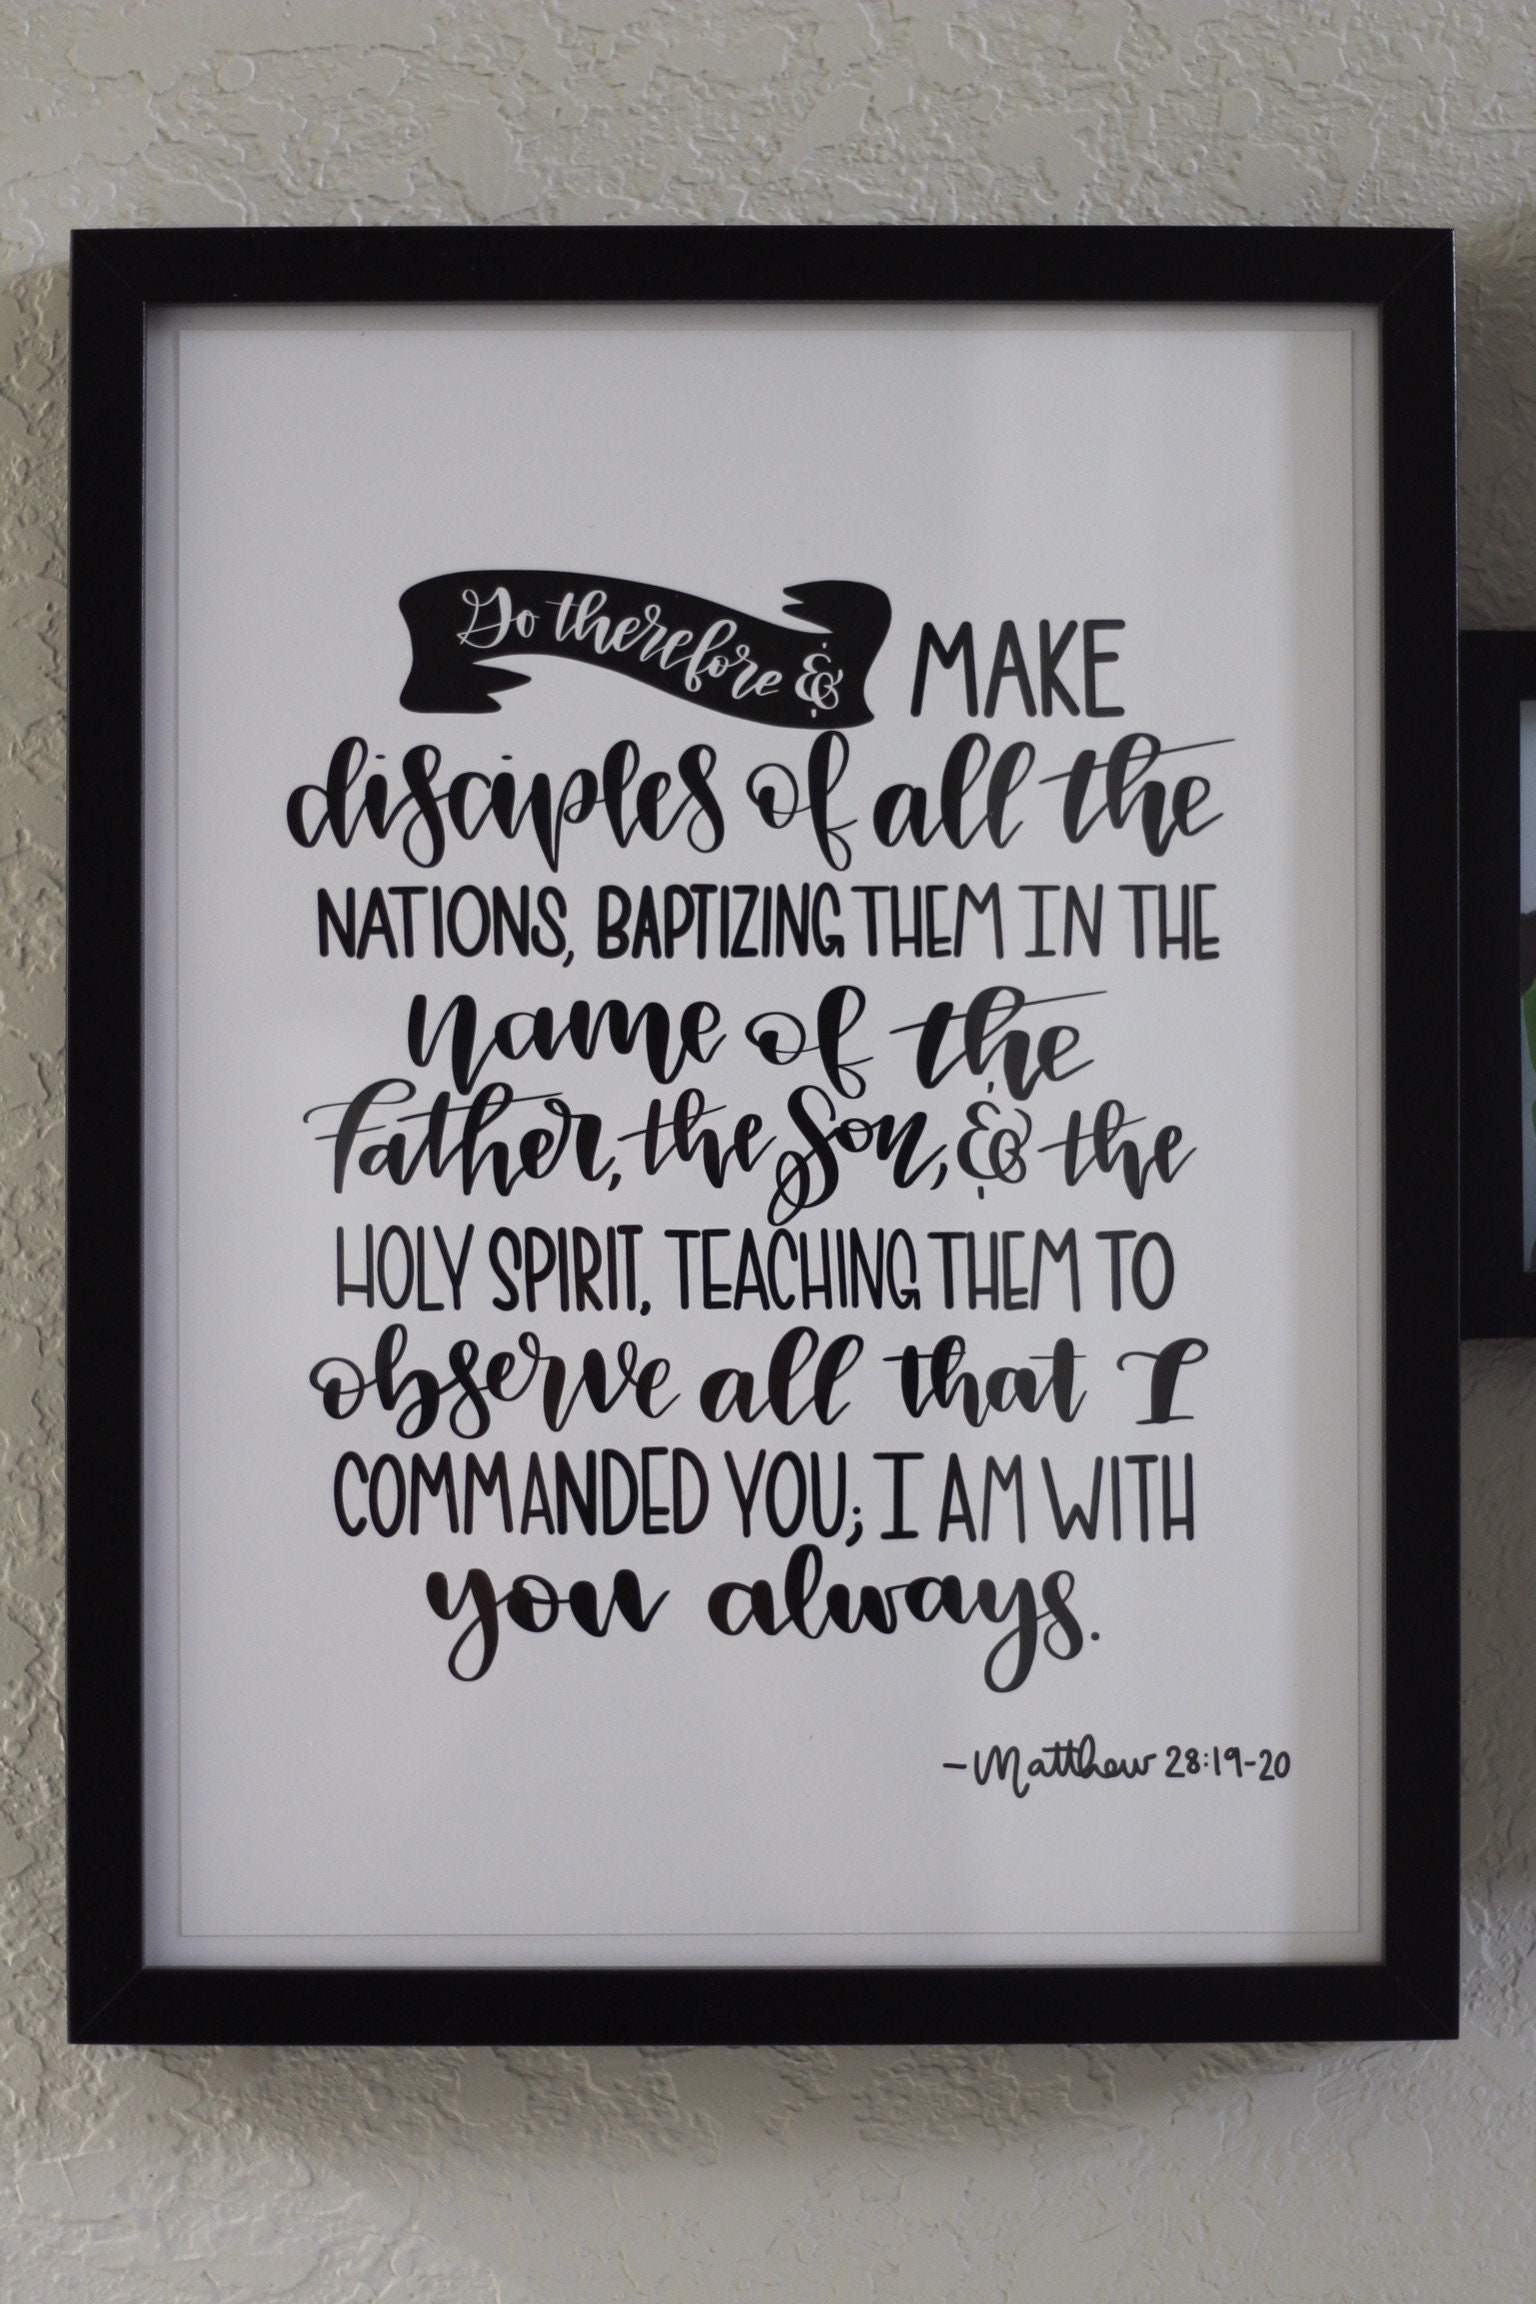 Go therefore & MAKE
disciples of all the
NATIONS, BAPTIZING THEM IN THE
name of the
Father, the Son, & the
HOLY SPIRIT, TEACHING THEM TO
observe all that I
COMMANDED YOU; I AM WITH
you always.
-Matthew 28:19-20